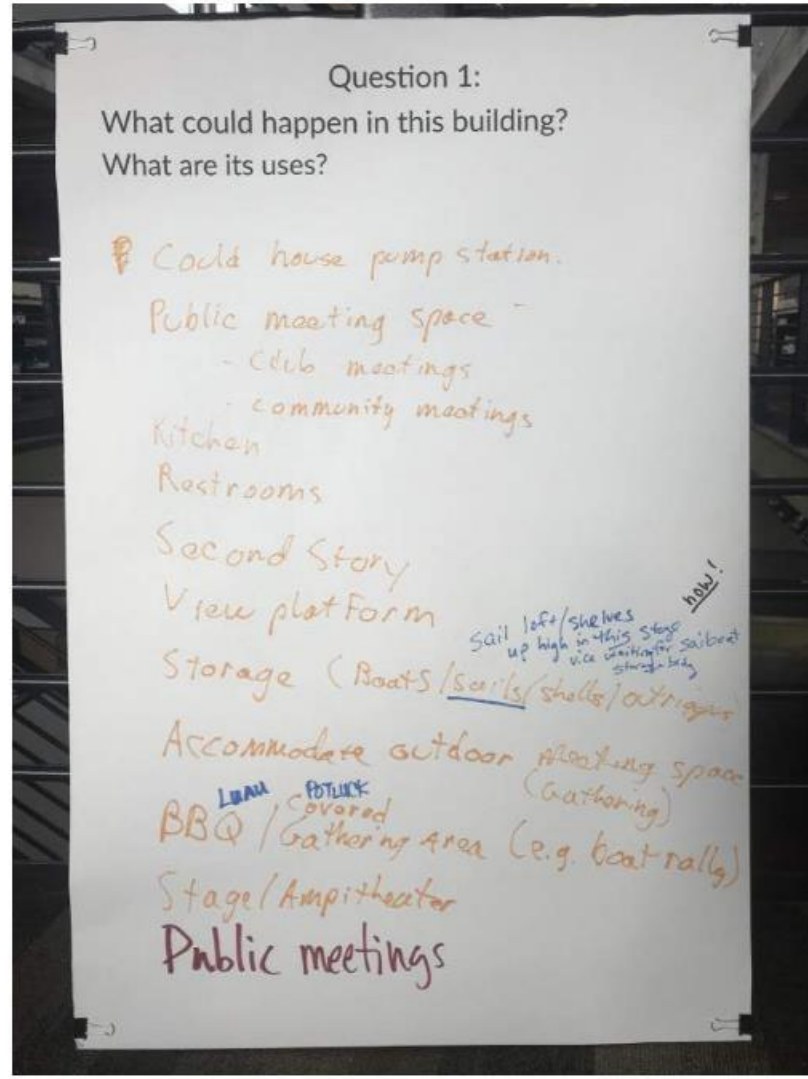 Question 1:
What could happen in this building?
What are its uses?
Could house pump station.
Public meeting space -
- Club meetings
- community meetings
Kitchen
Restrooms
Second Story
View platform
how!
sail loft/shelves
up high in this stage
vice waiting for sailboat
storage bldg
Storage (Boats/sails/shells/outriggers)
Accommodate outdoor meeting space
(Gathering)
LUAU POTLUCK
covered
BBQ / Gathering Area (e.g. boat rally)
Stage/Ampitheater
Public meetings